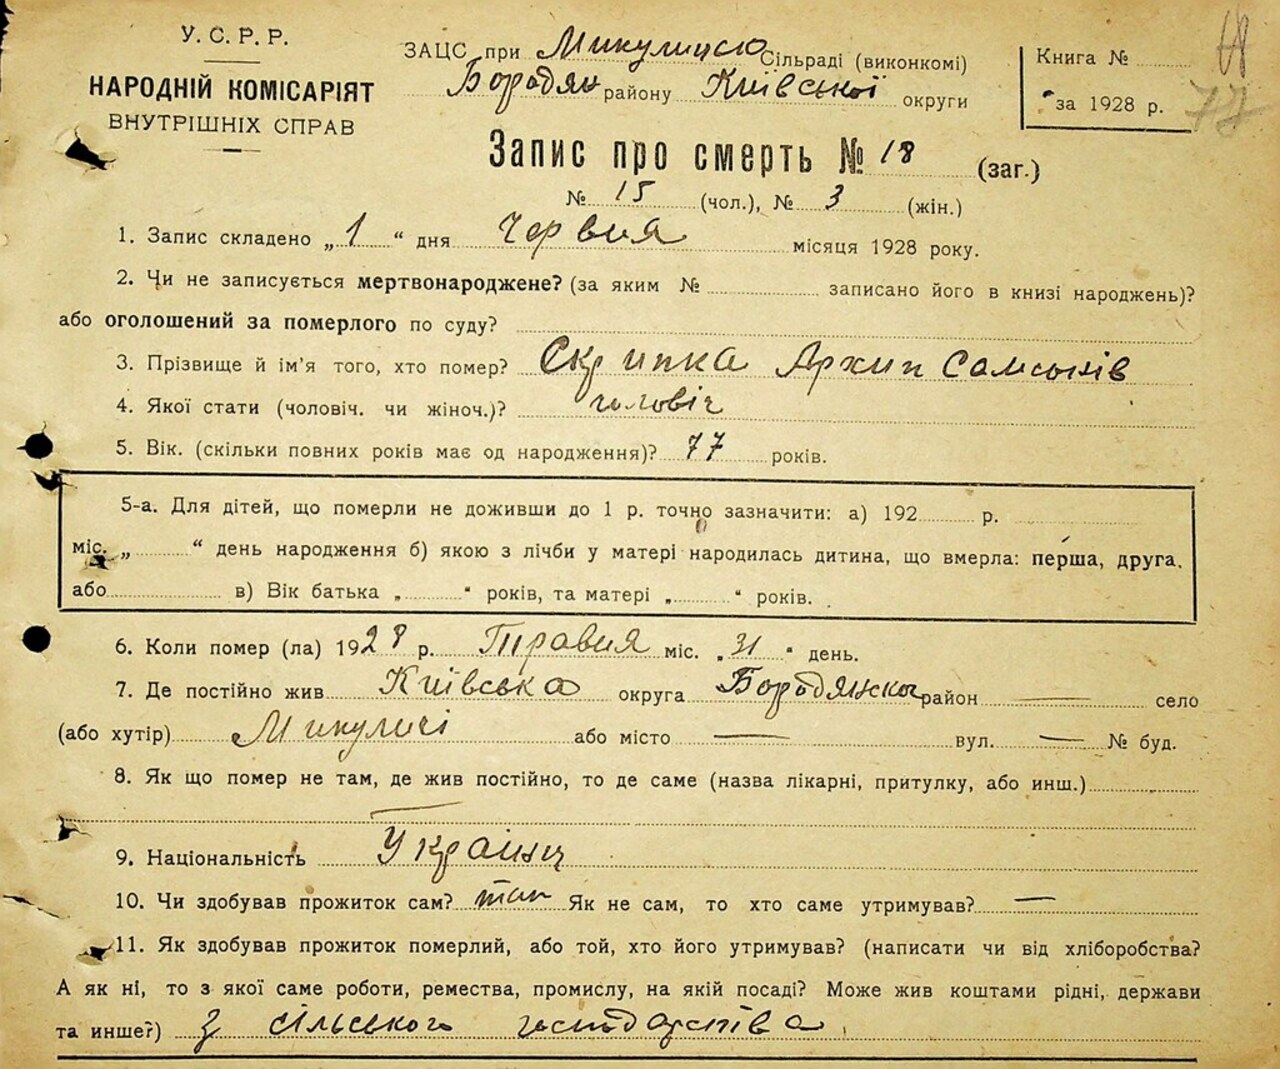 У. С. Р. Р.
НАРОДНІЙ КОМІСАРІЯТ
ВНУТРІШНІХ СПРАВ
ЗАЦС при Микулицькій Сільраді (виконкомі)
Бородян району Київської округи
Книга №
за 1928 р.
77
Запис про смерть № 18 (заг.)
№ 15 (чол.), № 3 (жін.)
1. Запис складено „1“ дня Червня місяця 1928 року.
2. Чи не записується мертвонароджене? (за яким № записано його в книзі народжень)?
або оголошений за померлого по суду?
3. Прізвище й ім'я того, хто помер? Скрипка Архип Самсонів
4. Якої стати (чоловіч. чи жіноч.)? чоловіч
5. Вік. (скільки повних років має од народження)? 77 років.
5-а. Для дітей, що померли не доживши до 1 р. точно зазначити: а) 192 р.
міс. „ “ день народження б) якою з лічби у матері народилась дитина, що вмерла: перша, друга.
або в) Вік батька „ “ років, та матері „ “ років.
6. Коли помер (ла) 1928 р. Травня міс. „31“ день.
7. Де постійно жив Київська округа Бородянськ район — село
(або хутір) Микуличі або місто — вул. — № буд.
8. Як що помер не там, де жив постійно, то де саме (назва лікарні, притулку, або инш.)
—
9. Національність Українц
10. Чи здобував прожиток сам? так Як не сам, то хто саме утримував? —
11. Як здобував прожиток померлий, або той, хто його утримував? (написати чи від хліборобства?
А як ні, то з якої саме роботи, ремества, промислу, на якій посаді? Може жив коштами рідні, держави
та инше?) З сільського господарства